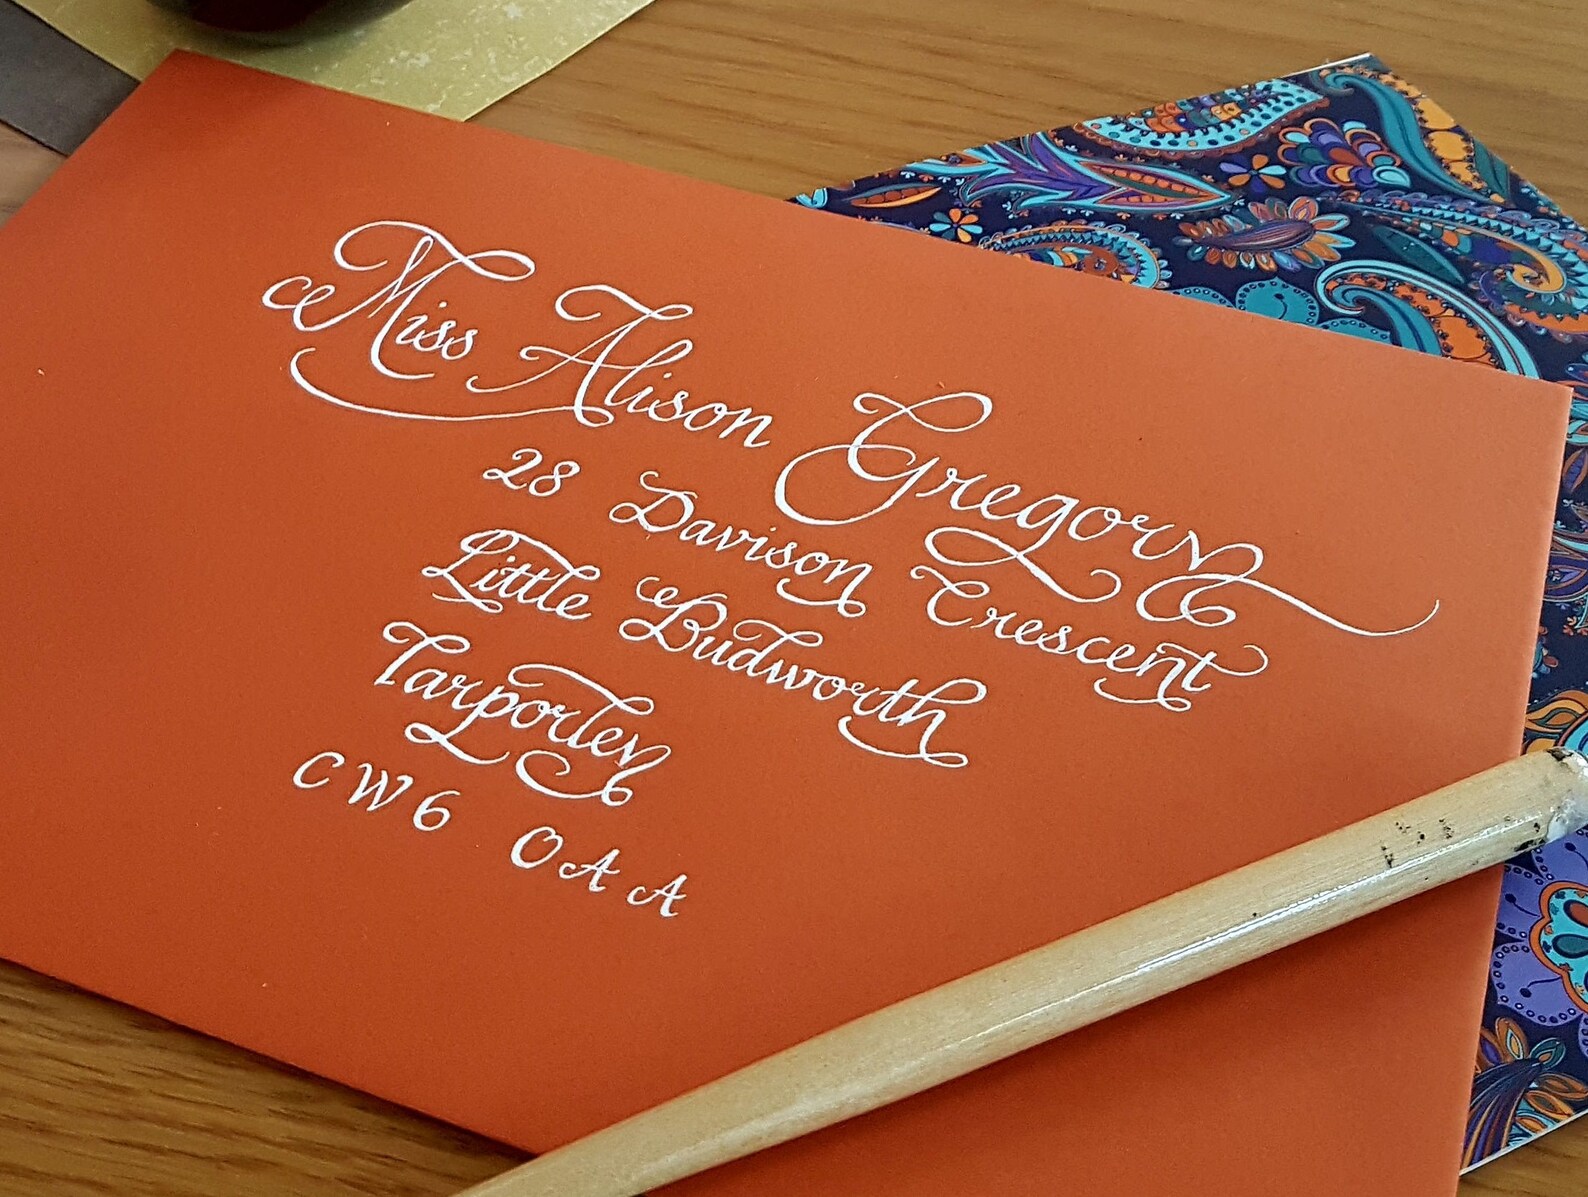 Miss Alison Gregory
28 Davison Crescent
Little Budworth
Tarporley
CW6 0AA